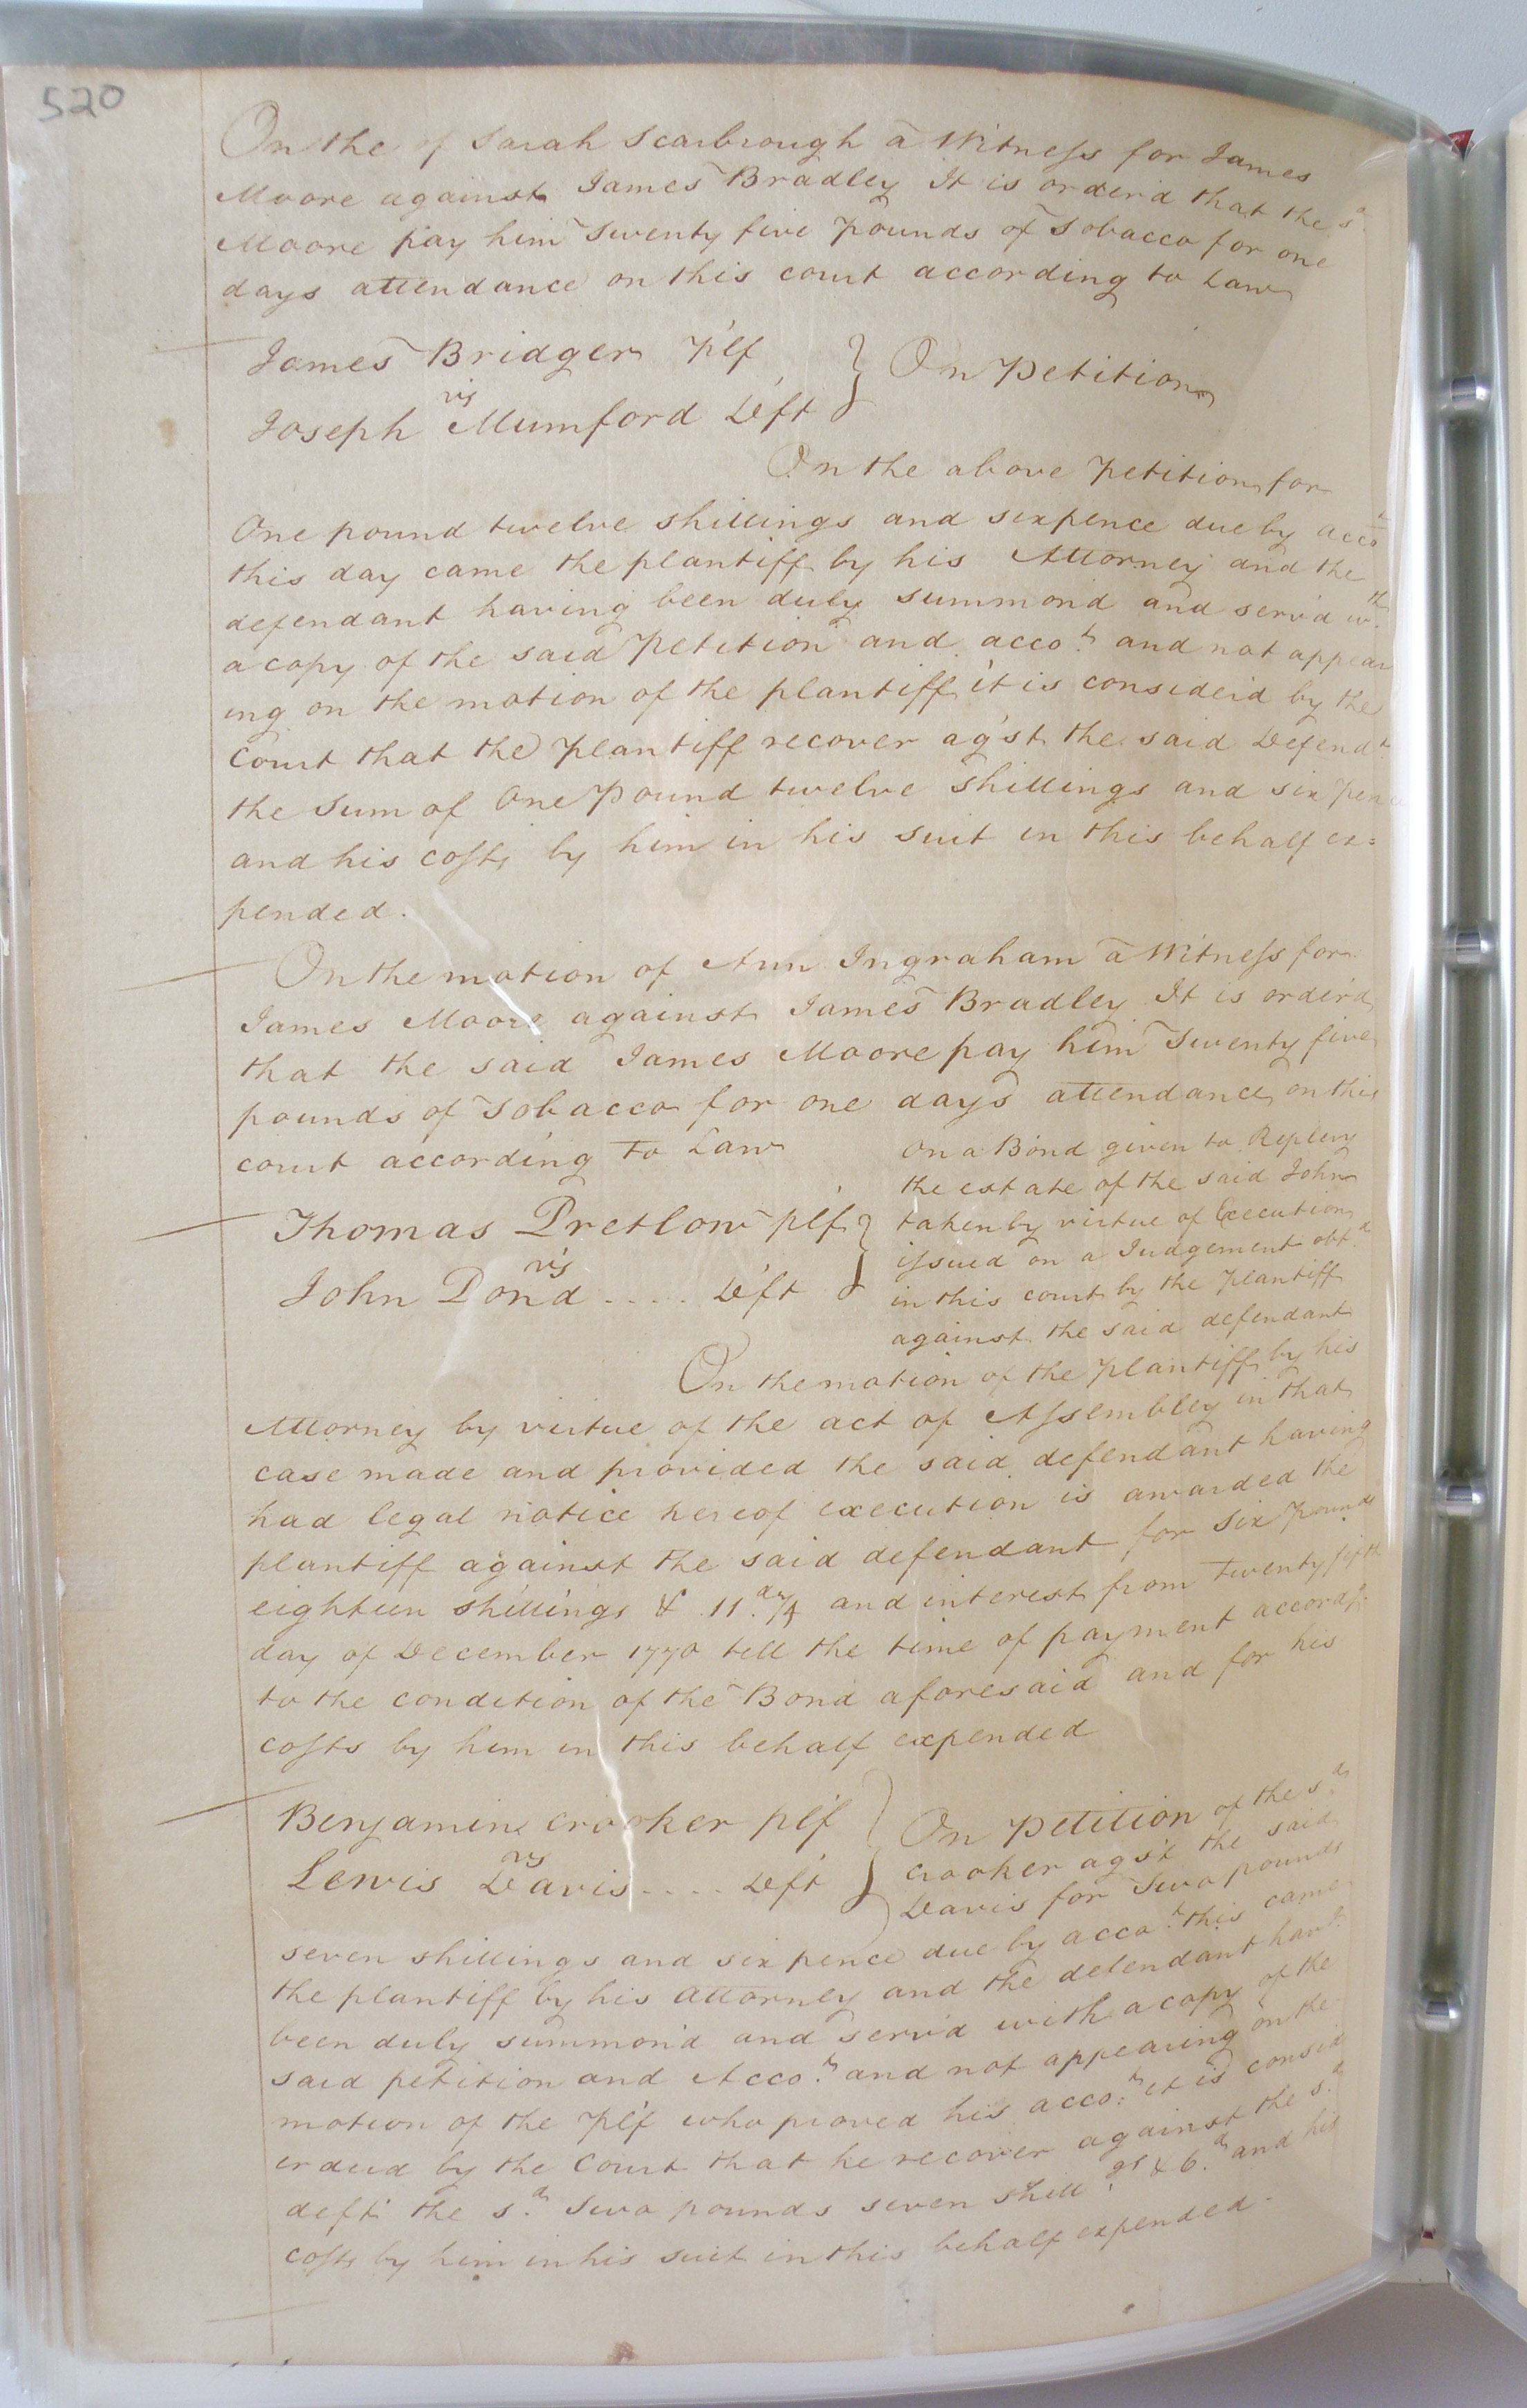 520
On the of Sarah Scarbrough a Witness for James
Moore against James Bradley It is order'd that the sd
Moore pay him Twenty five pounds of Tobacco for one
days attendance on this court according to Law
James Bridger Plf
vs
Joseph Mumford Deft
} On Petition
On the above Petition for
One pound twelve shillings and sixpence due by acco.t
this day came the plantiff by his Attorney and the
defendant having been duly summond and serv'd w.th
a copy of the said Petition and acco.t and not appear
ing on the motion of the plantiff it is consider'd by the
Court that the Plantiff recover ag'st the said Defend.t
the Sum of One Pound twelve shillings and six pence
and his costs by him in his suit in this behalf ex=
pended.
On the motion of Ann Ingraham a Witness for
James Moore against James Bradley It is order'd
that the said James Moore pay him Twenty five
pounds of Tobacco for one days attendance on this
court according to Law
Thomas Pretlow plf
vs
John Pond .... Deft
} On a Bond given to Replevy
the estate of the said John
taken by virtue of Execution
issued on a Judgement obt.d
in this court by the Plantiff
against the said defendant
On the motion of the Plantiff by his
Attorney by virtue of the act of Assembley in that
case made and provided the said defendant having
had legal notice hereof execution is awarded the
plantiff against the said defendant for Six pounds
eighteen shillings & 11.d 1/4 and interest from Twenty fifth
day of December 1770 till the time of payment accord.g
to the condition of the Bond aforesaid and for his
costs by him in this behalf expended
Benjamin Crooker plf
vs
Lewis Davis .... Deft
} On Petition of the s.d
Crooker ags't the said
Davis for Two pounds
seven shillings and six pence due by acco.t this came
the plantiff by his Attorney and the defendant hav.g
been duly summon'd and serv'd with a copy of the
said petition and Acco.t and not appearing on the
motion of the Plf who proved his acco.t it is consid
ered by the Court that he recover against the s.d
deft the s.d Two pounds seven shill.gs & 6.d and his
costs by him in his suit in this behalf expended.